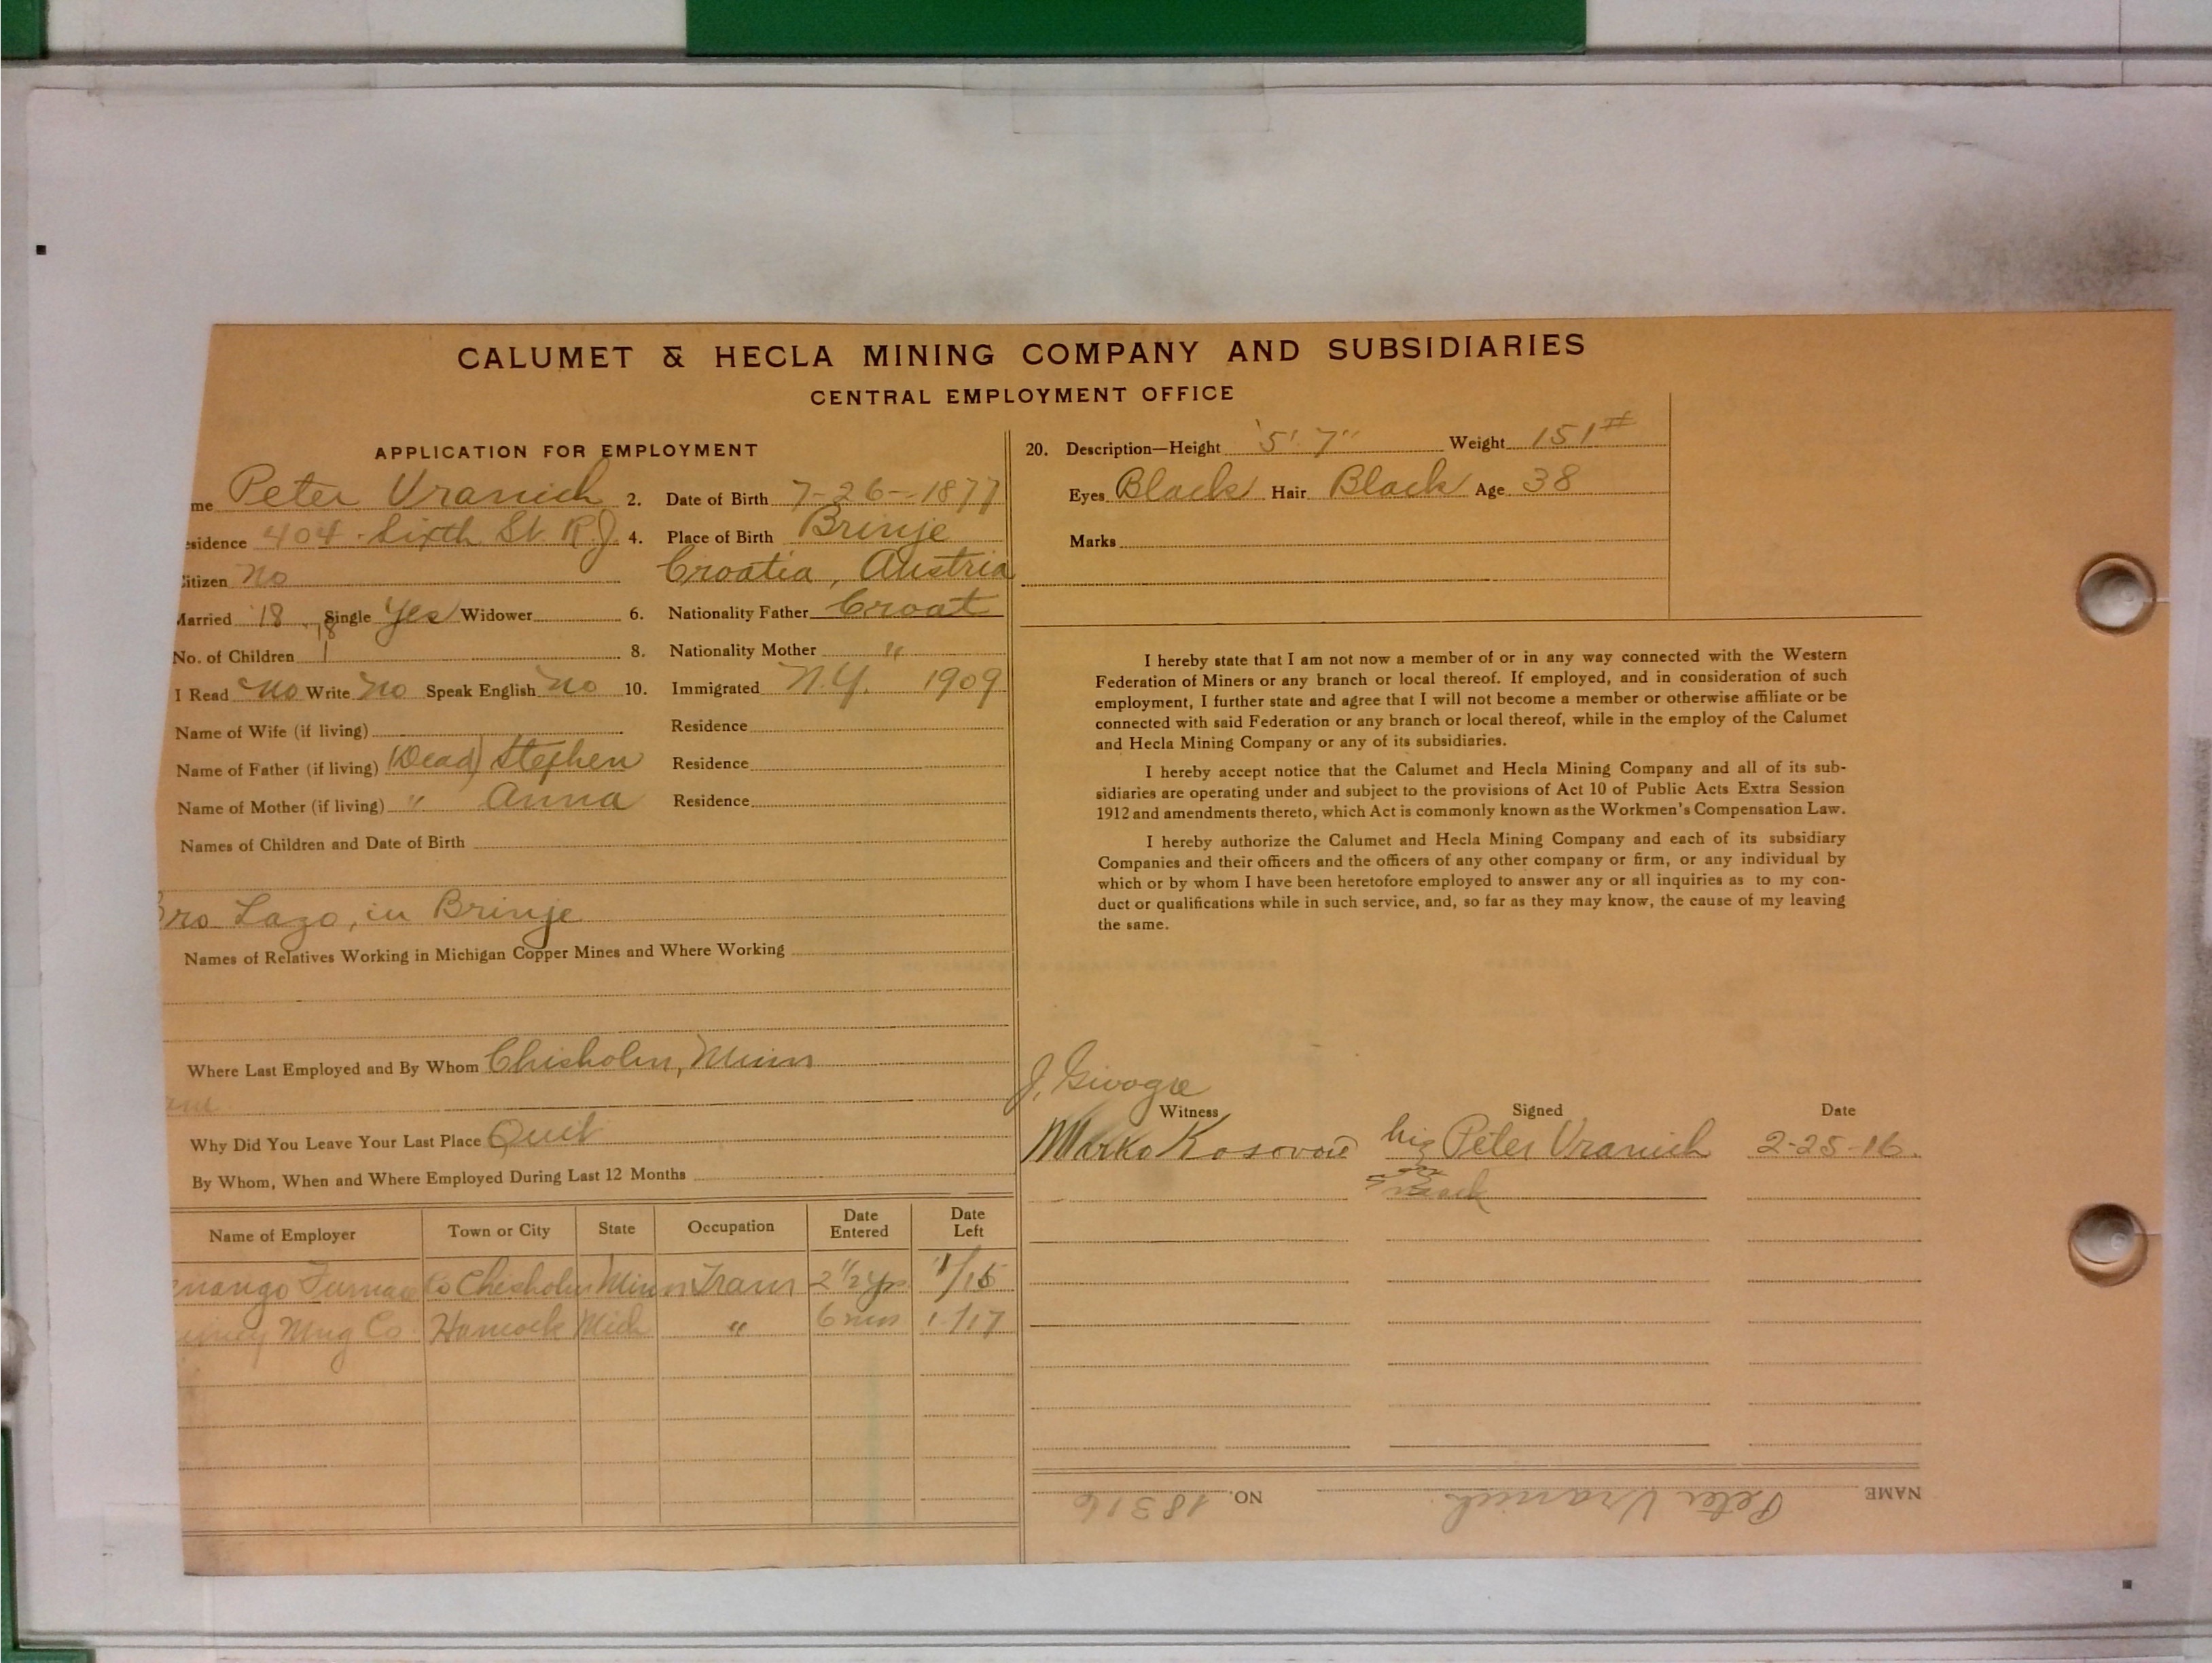 CALUMET & HECLA MINING COMPANY AND SUBSIDIARIES
CENTRAL EMPLOYMENT OFFICE
APPLICATION FOR EMPLOYMENT
me Peter Vranich 2. Date of Birth 7-26-1877
esidence 404 - Sixth St. R.J. 4. Place of Birth Brinje
Citizen No Croatia, Austria
Married '18 Single Yes Widower 6. Nationality Father Croat
No. of Children 1 8. Nationality Mother "
I Read No Write No Speak English No 10. Immigrated N.Y. 1909
Name of Wife (if living) Residence
Name of Father (if living) (Dead) Stephen Residence
Name of Mother (if living) " Anna Residence
Names of Children and Date of Birth
Bro Lazo, in Brinje
Names of Relatives Working in Michigan Copper Mines and Where Working
Where Last Employed and By Whom Chisholm, Minn
Why Did You Leave Your Last Place Quit
By Whom, When and Where Employed During Last 12 Months
Name of Employer Town or City State Occupation Date Entered Date Left
nango Furnace Co Chisholm Minn Tram 2 1/2 yrs 1/15
Mng Co Hancock Mich " 6 mos 1/17
20. Description—Height 5' 7" Weight 151#
Eyes Black Hair Black Age 38
Marks
I hereby state that I am not now a member of or in any way connected with the Western
Federation of Miners or any branch or local thereof. If employed, and in consideration of such
employment, I further state and agree that I will not become a member or otherwise affiliate or be
connected with said Federation or any branch or local thereof, while in the employ of the Calumet
and Hecla Mining Company or any of its subsidiaries.
I hereby accept notice that the Calumet and Hecla Mining Company and all of its sub-
sidiaries are operating under and subject to the provisions of Act 10 of Public Acts Extra Session
1912 and amendments thereto, which Act is commonly known as the Workmen's Compensation Law.
I hereby authorize the Calumet and Hecla Mining Company and each of its subsidiary
Companies and their officers and the officers of any other company or firm, or any individual by
which or by whom I have been heretofore employed to answer any or all inquiries as to my con-
duct or qualifications while in such service, and, so far as they may know, the cause of my leaving
the same.
Witness Signed Date
Marko his Peter Vranich 2-25-16.
mark
NAME Peter Vranich NO. 18316